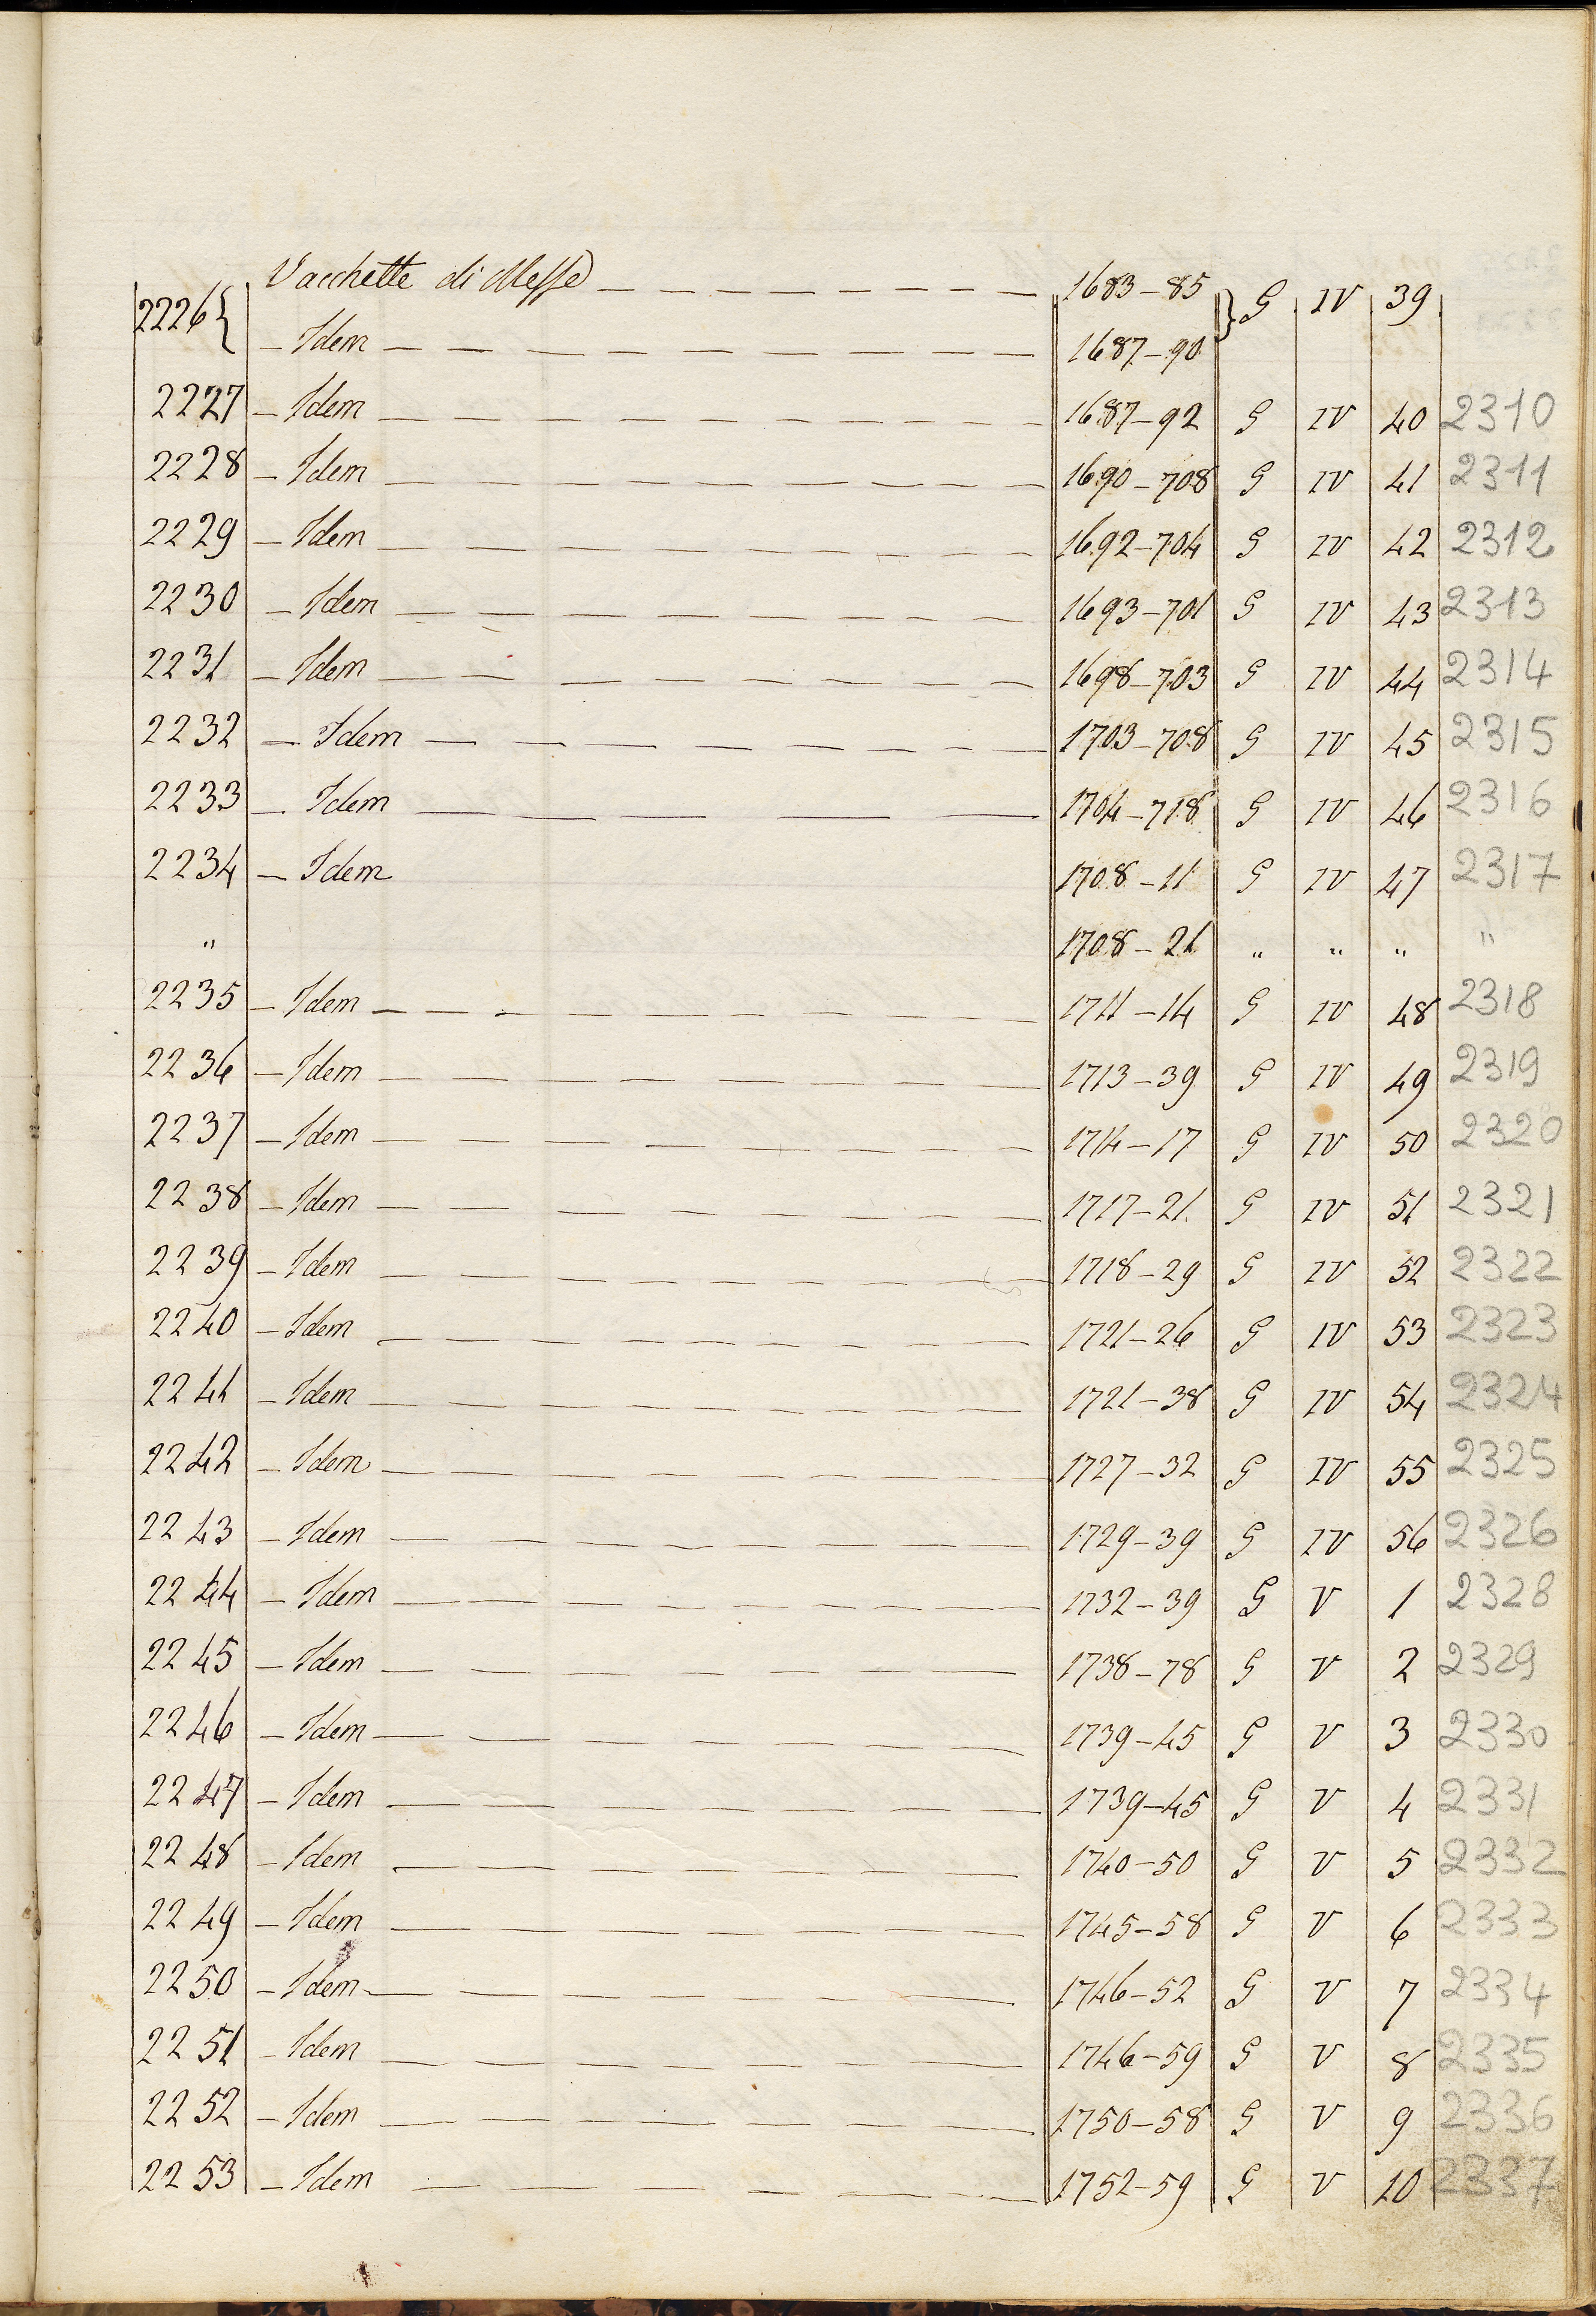 2226 { Vacchette di Messe — 1683–85 } G IV 39
– Idem — 1687–90
2227 – Idem — 1687–92 G IV 40 2310
2228 – Idem — 1690–708 G IV 41 2311
2229 – Idem — 1692–704 G IV 42 2312
2230 – Idem — 1693–701 G IV 43 2313
2231 – Idem — 1698–703 G IV 44 2314
2232 – Idem — 1703–708 G IV 45 2315
2233 – Idem — 1704–718 G IV 46 2316
2234 – Idem 1708–11 G IV 47 2317
" 1708–21 " " " "
2235 – Idem — 1711–14 G IV 48 2318
2236 – Idem — 1713–39 G IV 49 2319
2237 – Idem — 1714–17 G IV 50 2320
2238 – Idem — 1717–21 G IV 51 2321
2239 – Idem — 1718–29 G IV 52 2322
2240 – Idem — 1721–26 G IV 53 2323
2241 – Idem — 1721–38 G IV 54 2324
2242 – Idem — 1727–32 G IV 55 2325
2243 – Idem — 1729–39 G IV 56 2326
2244 – Idem — 1732–39 G V 1 2328
2245 – Idem — 1738–78 G V 2 2329
2246 – Idem — 1739–45 G V 3 2330
2247 – Idem — 1739–45 G V 4 2331
2248 – Idem — 1740–50 G V 5 2332
2249 – Idem — 1745–58 G V 6 2333
2250 – Idem — 1746–52 G V 7 2334
2251 – Idem — 1746–59 G V 8 2335
2252 – Idem — 1750–58 G V 9 2336
2253 – Idem — 1752–59 G V 10 2337